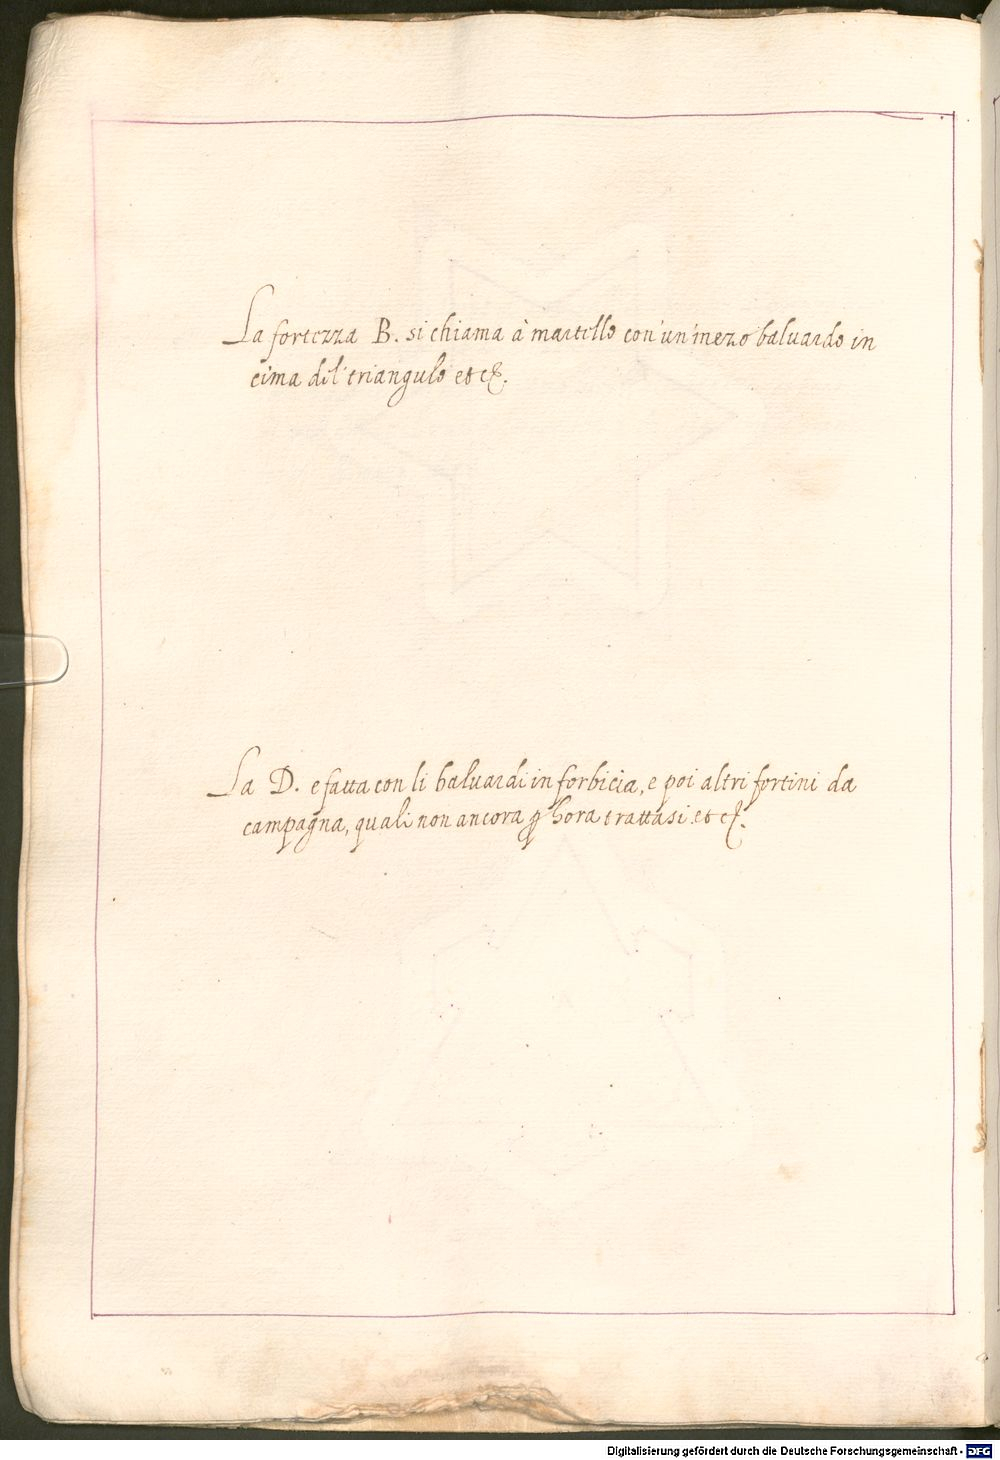 La fortezza B. si chiama à martello con'un'mezo baluardo in
cima dil'triangulo et cę.
La D. e fatta con li baluardi in forbicia, e poi altri fortini da
campagna, quali non ancora ꝑ hora trattasi et cę.
Digitalisierung gefördert durch die Deutsche Forschungsgemeinschaft - DFG